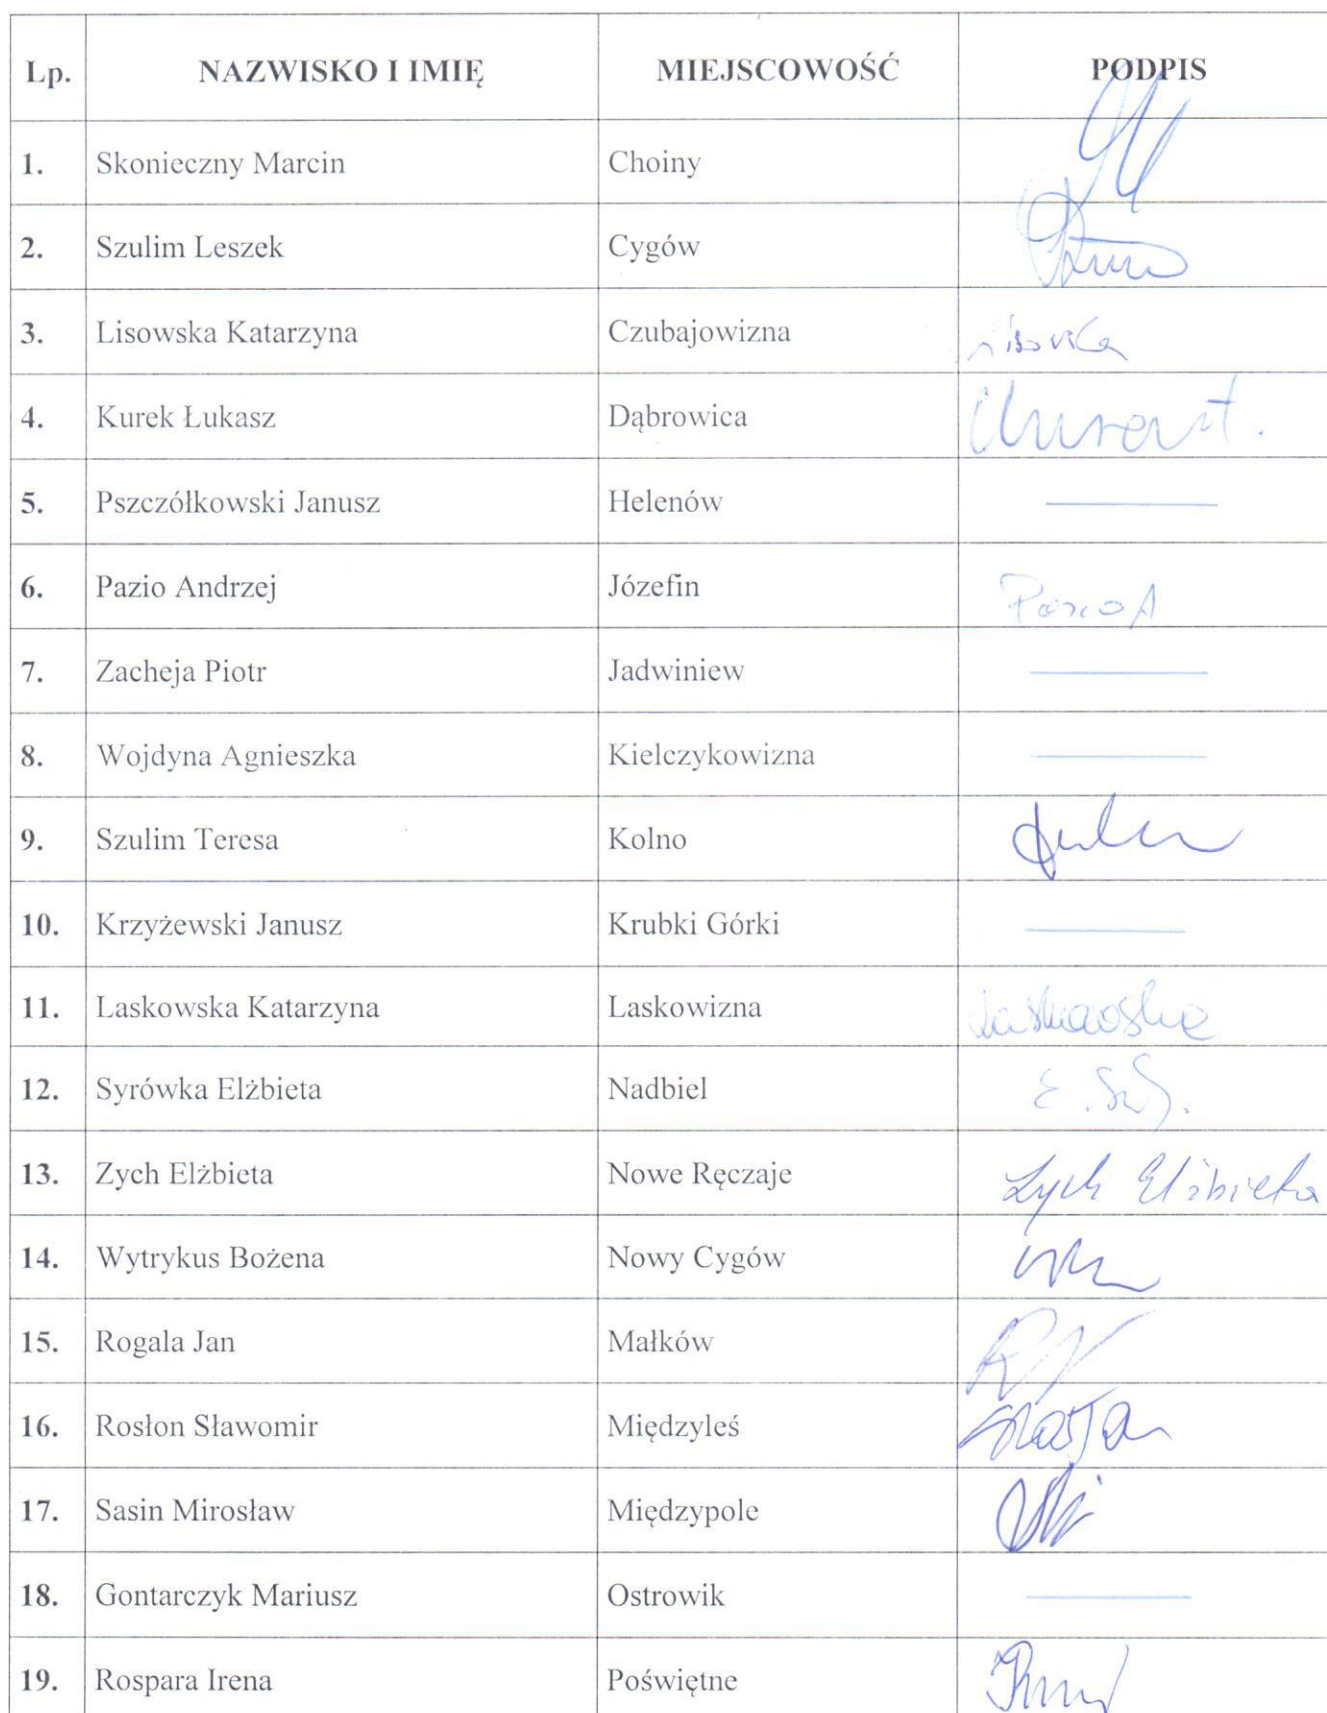 Lp. NAZWISKO I IMIĘ MIEJSCOWOŚĆ PODPIS
1. Skonieczny Marcin Choiny
2. Szulim Leszek Cygów
3. Lisowska Katarzyna Czubajowizna
4. Kurek Łukasz Dąbrowica
5. Pszczółkowski Janusz Helenów
6. Pazio Andrzej Józefin
7. Zacheja Piotr Jadwiniew
8. Wojdyna Agnieszka Kielczykowizna
9. Szulim Teresa Kolno
10. Krzyżewski Janusz Krubki Górki
11. Laskowska Katarzyna Laskowizna
12. Syrówka Elżbieta Nadbiel
13. Zych Elżbieta Nowe Ręczaje Zych Elżbieta
14. Wytrykus Bożena Nowy Cygów
15. Rogala Jan Małków
16. Rosłon Sławomir Międzyleś
17. Sasin Mirosław Międzypole
18. Gontarczyk Mariusz Ostrowik
19. Rospara Irena Poświętne